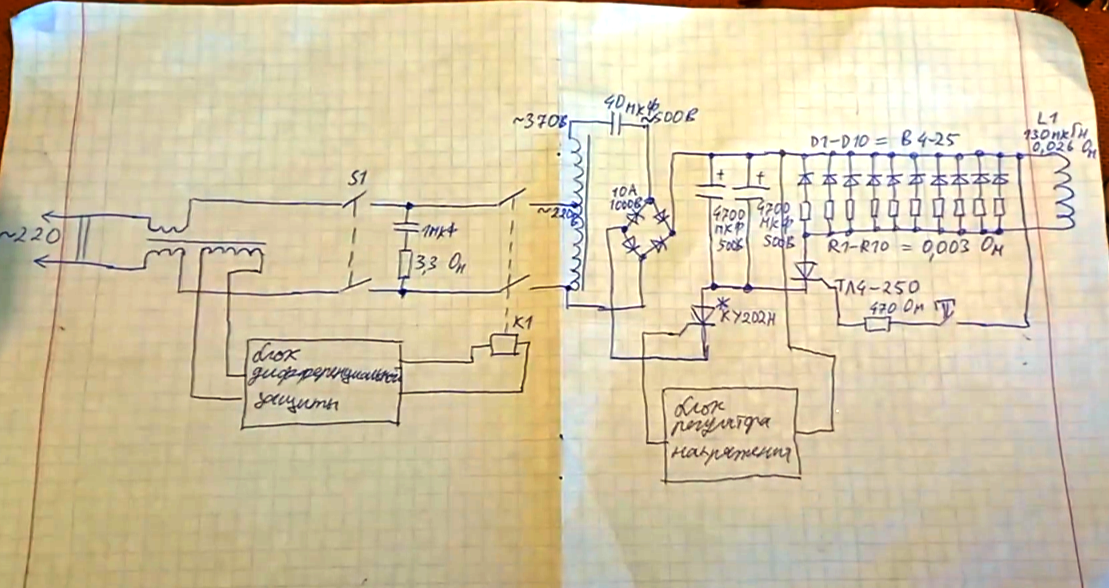 ~220
S1
1мкф
3,3 Ом
К1
блок
дифференциальной
защиты
~370в
40мкф
~500В
~220в
10А
1000В
+
+
4700
мкф
500В
4700
мкф
500В
D1-D10 = В4-25
R1-R10 = 0,003 Ом
L1
130мкГн
0,026 Ом
ТЛ4-250
470 Ом
*
КУ202Н
блок
регулятора
напряжения